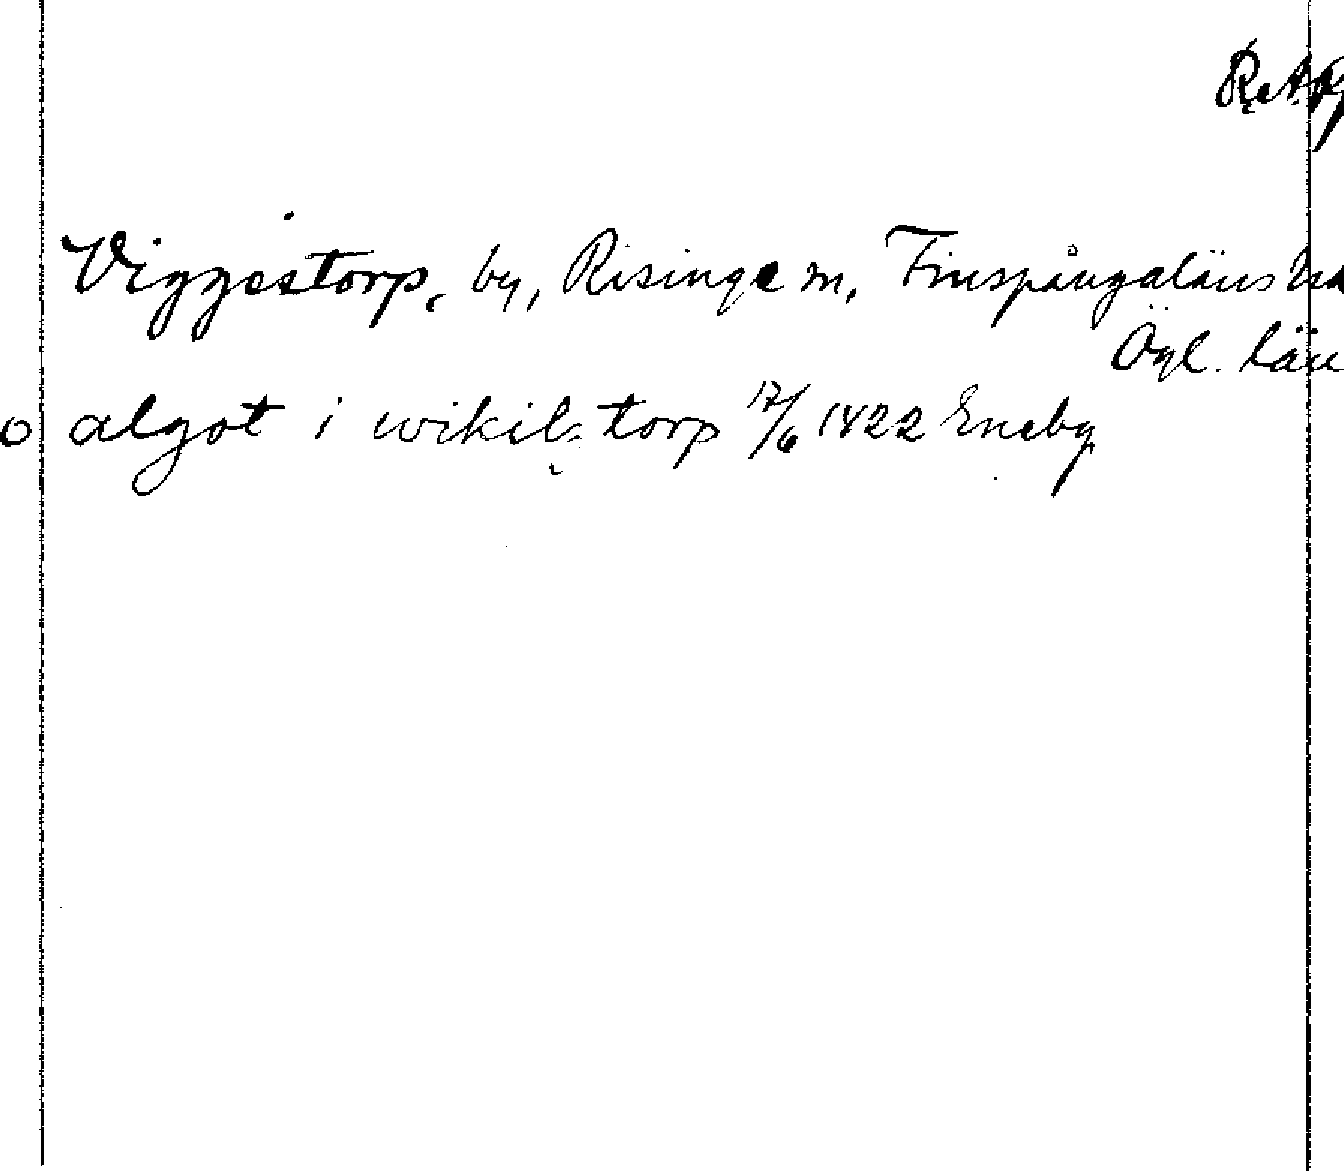 Viggestorp, by, Risinge sn, Finspångaläns
Ögl. län
o algot i wikils torp 17/6 1422 Eneby